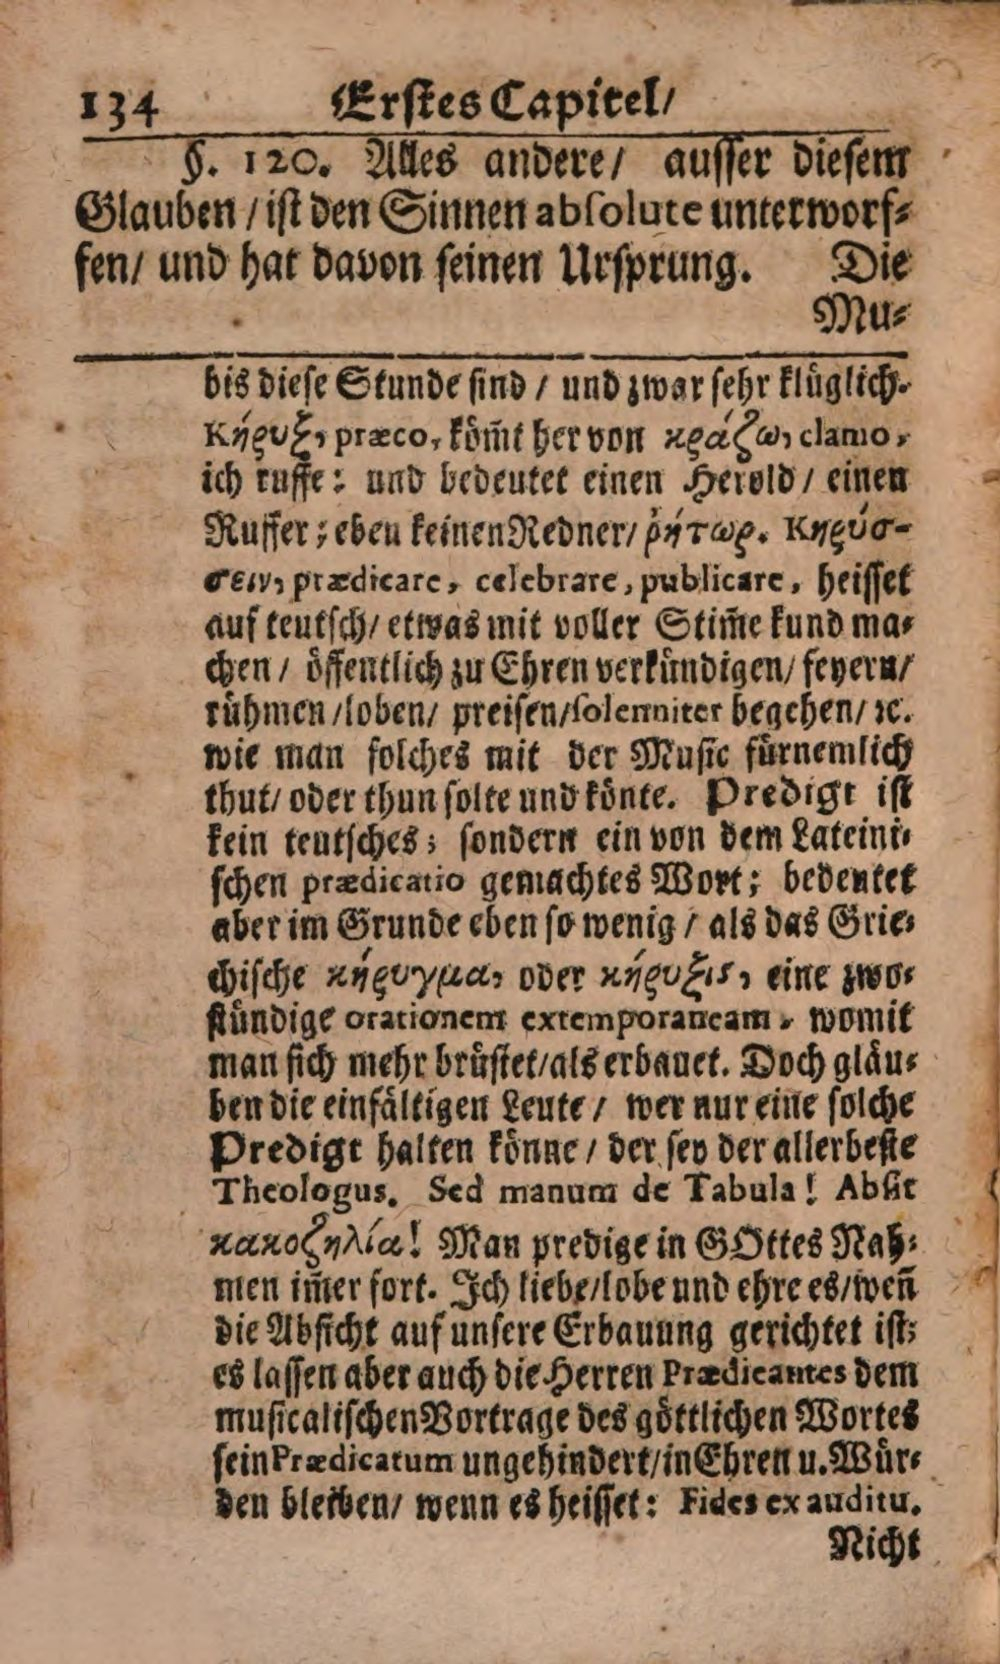 134 Erstes Capitel/
§. 120. Alles andere/ ausser diesem
Glauben / ist den Sinnen absolute unterworf-
fen/ und hat davon seinen Ursprung. Die
Mu-
bis diese Stunde sind / und zwar sehr klüglich.
Κήρυξ, præco, köm̃t her von κράζω, clamo,
ich ruffe: und bedeutet einen Herold / einen
Ruffer; eben keinen Redner/ ῥήτωρ. Κηρύσ-
σειν, prædicare, celebrare, publicare, heisset
auf teutsch/ etwas mit voller Stim̃e kund ma-
chen / öffentlich zu Ehren verkündigen/ feyern/
rühmen /loben/ preisen/solenniter begehen/ ꝛc.
wie man solches mit der Music fürnemlich
thut/ oder thun solte und könte. Predigt ist
kein teutsches; sondern ein von dem Lateini-
schen prædicatio gemachtes Wort; bedeutet
aber im Grunde eben so wenig / als das Grie-
chische κήρυγμα, oder κήρυξις, eine zwo-
stündige orationem extemporaneam, womit
man sich mehr brüstet/als erbauet. Doch gläu-
ben die einfältigen Leute / wer nur eine solche
Predigt halten könne / der sey der allerbeste
Theologus. Sed manum de Tabula! Absit
κακοζηλία! Man predige in GOttes Nah-
men im̃er fort. Ich liebe/lobe und ehre es/weñ
die Absicht auf unsere Erbauung gerichtet ist;
es lassen aber auch die Herren Prædicantes dem
musicalischen Vortrage des göttlichen Wortes
sein Prædicatum ungehindert/in Ehren u. Wür-
den bleiben/ wenn es heisset: Fides ex auditu.
Nicht